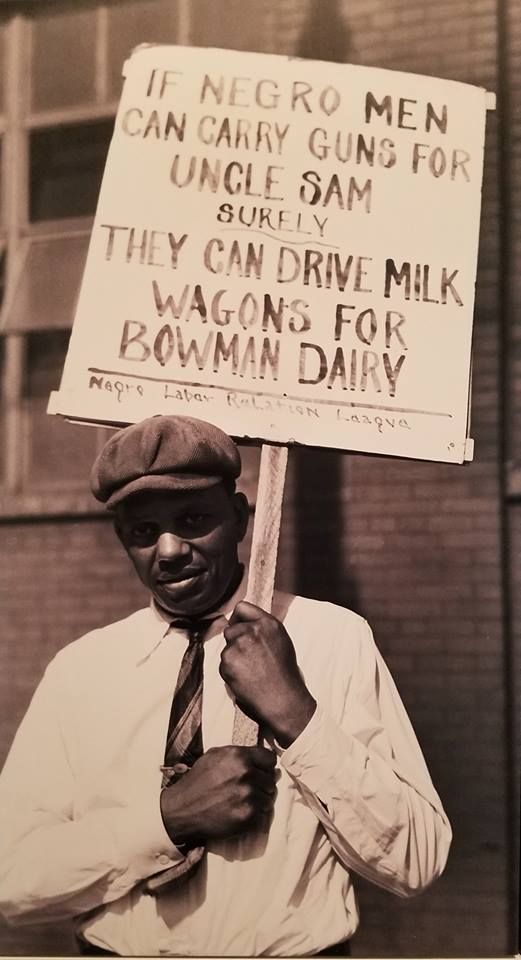 IF NEGRO MEN
CAN CARRY GUNS FOR
UNCLE SAM
SURELY
THEY CAN DRIVE MILK
WAGONS FOR
BOWMAN DAIRY
Negro Labor Relation Leaqve